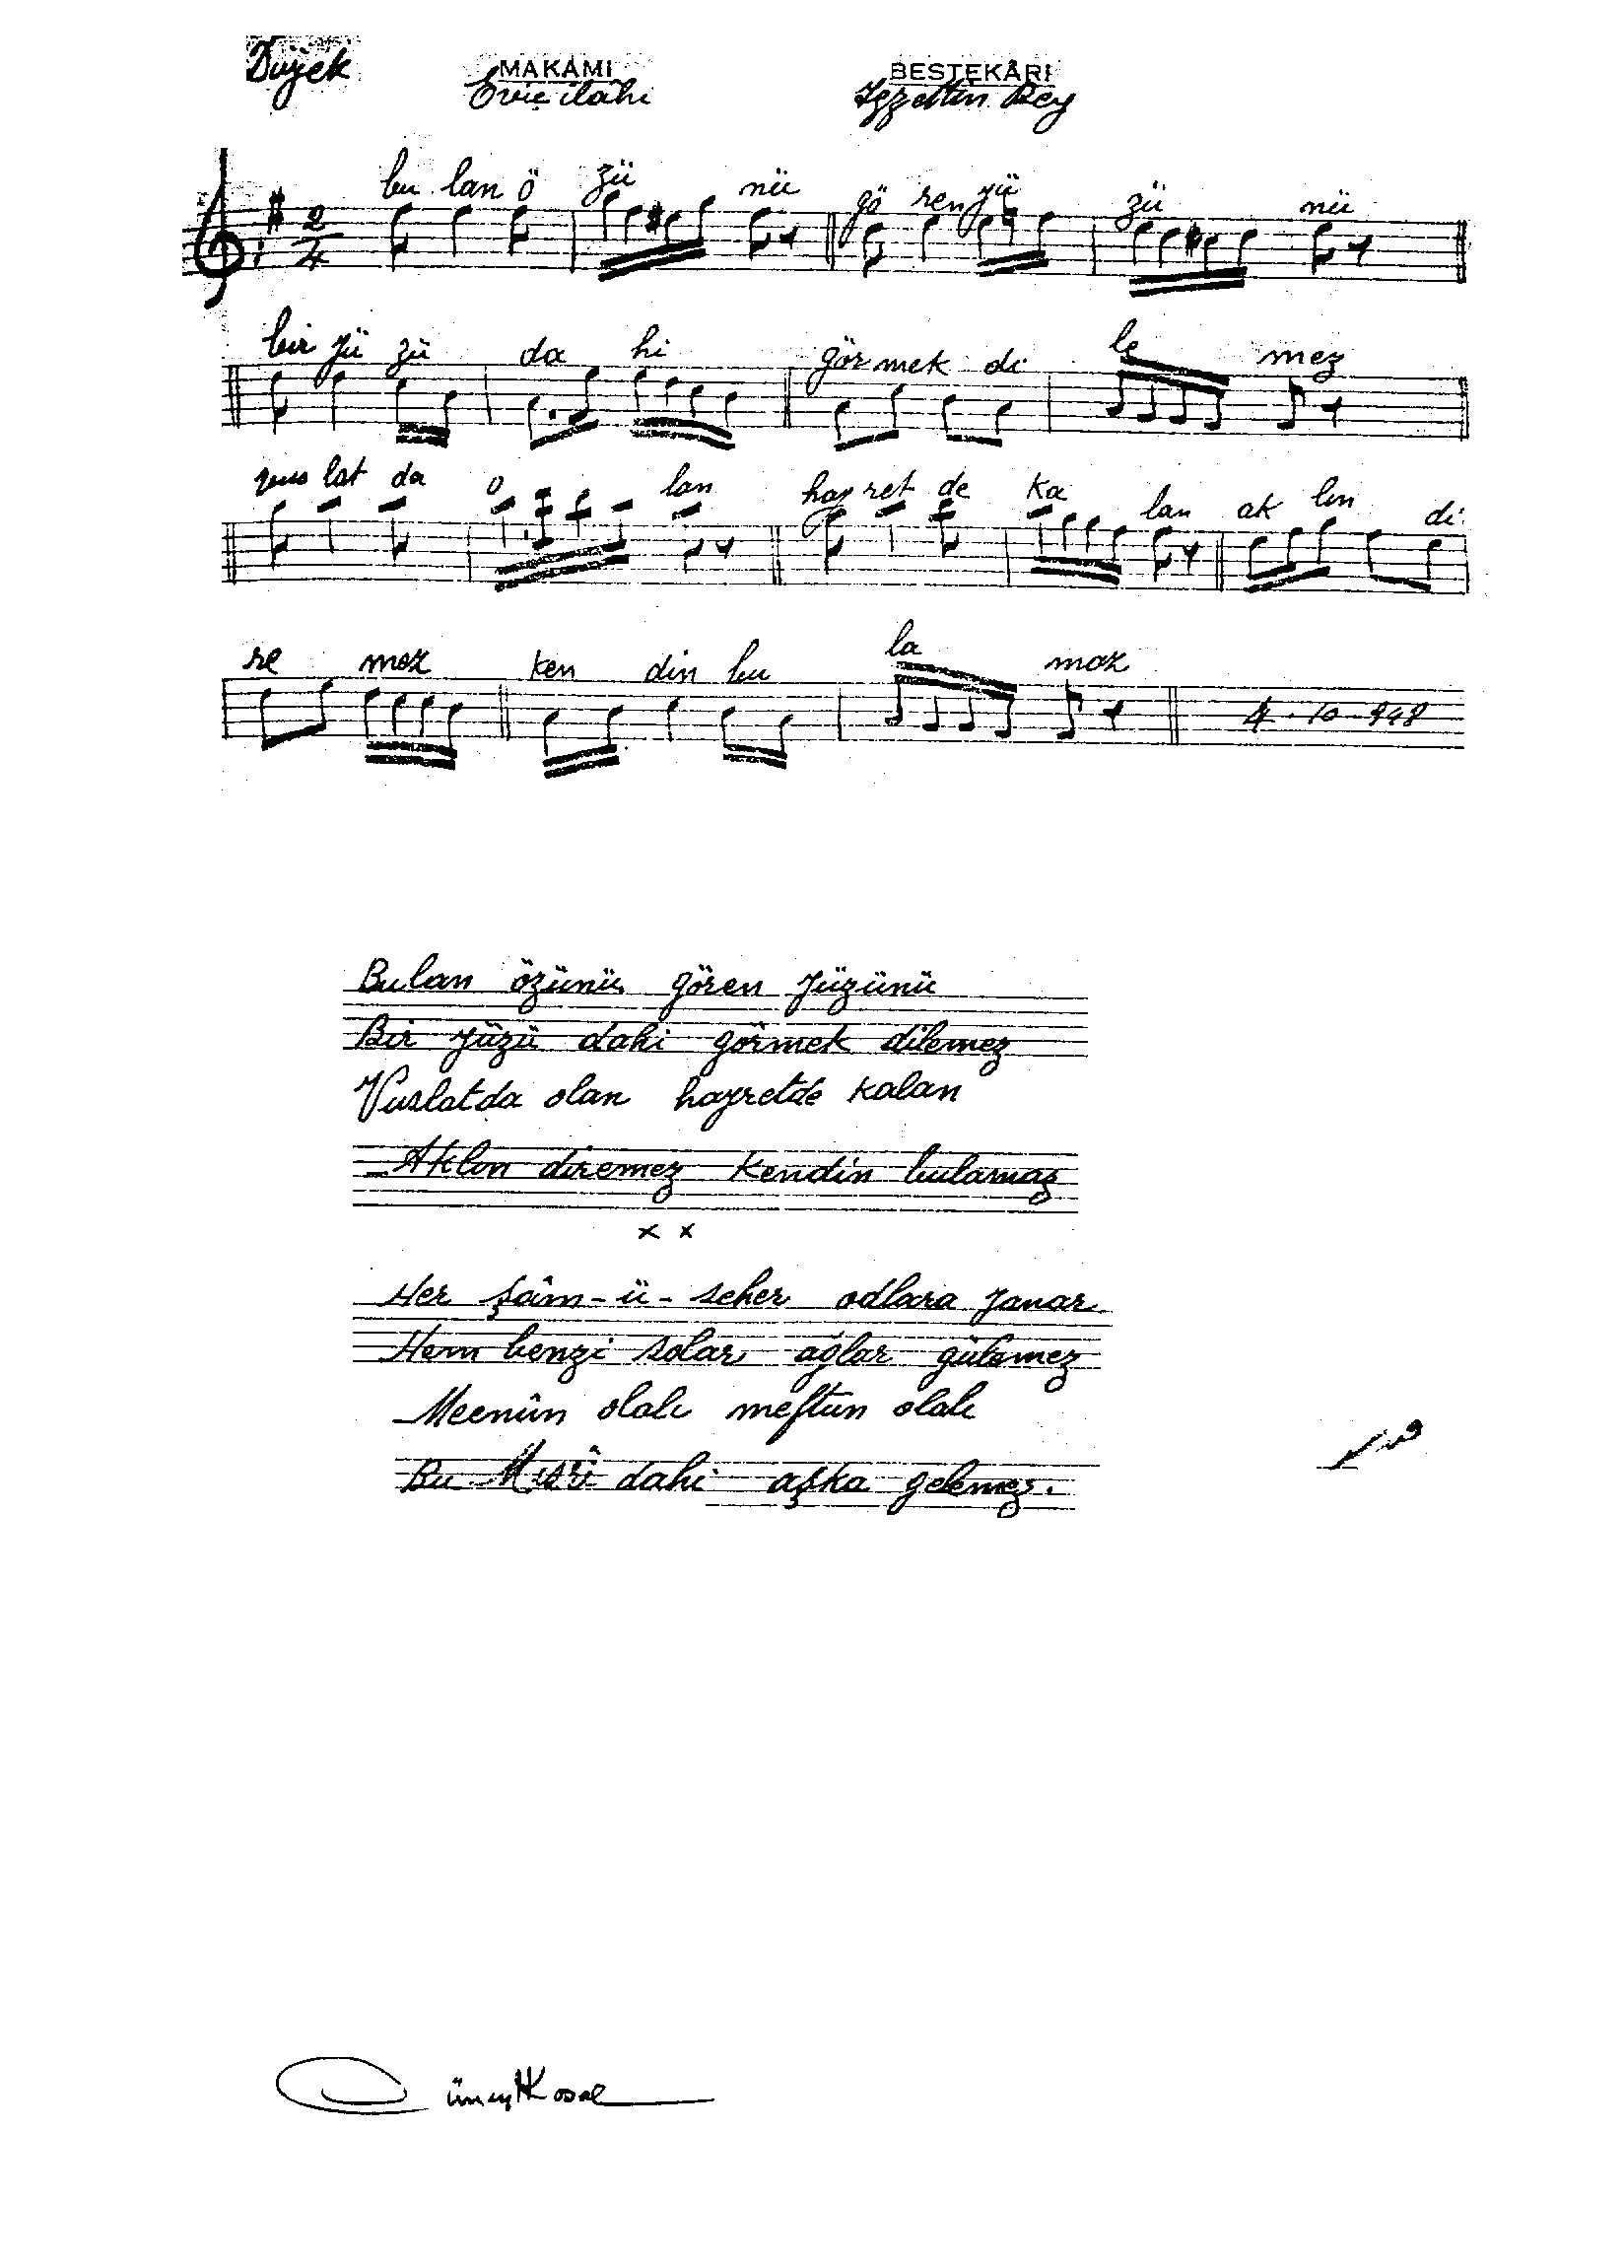 Düyek
MAKAMI
Eviç ilâhi
BESTEKÂRI
İzzettin Bey
bu lan ö zü nü gö ren yü zü nü
2/4
bir yü zü da hi gör mek di le mez
vus lat da o lan hay ret de ka lan ak lın di
re mez ken din bu la maz
4.10.949
Bulan özünü gören yüzünü
Bir yüzü dahi görmek dilemez
Vuslatda olan hayretde kalan
Aklın diremez kendin bulamaz
x x
Her şâm-ü-seher odlara yanar
Hem benzi solar ağlar gülemez
Mecnûn olalı meftun olalı
Bu Mısrî dahi aşka gelemez.
Cüneyt Kosal